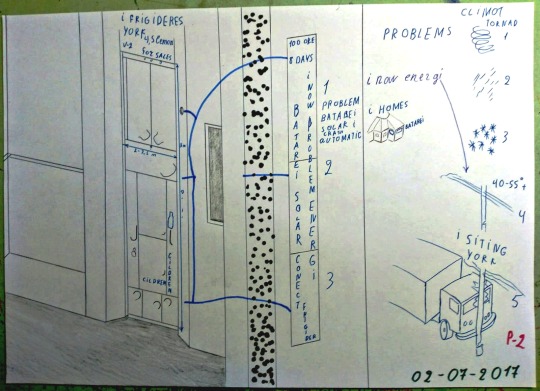 i FRIGIDERES
YORK 4,5 Cemon
V-2 FOR SALES
2-2,5 m
8
CILDREM
CILDREM
100 ORE
8 DAYS
BATAREI SOLAR CONECT FRIGIDER
i NOW PROBLEM ENERGI
1
PROBLEM
BATABEI
SOLAR i
CRASH
AUTOMATIC
2
3
PROBLEMS
i now energi
i HOMES
BATABEI
CLIMOT
TORNAD
1
2
3
40-55°+
4
i SITING
YORK
5
P-2
02-07-2017